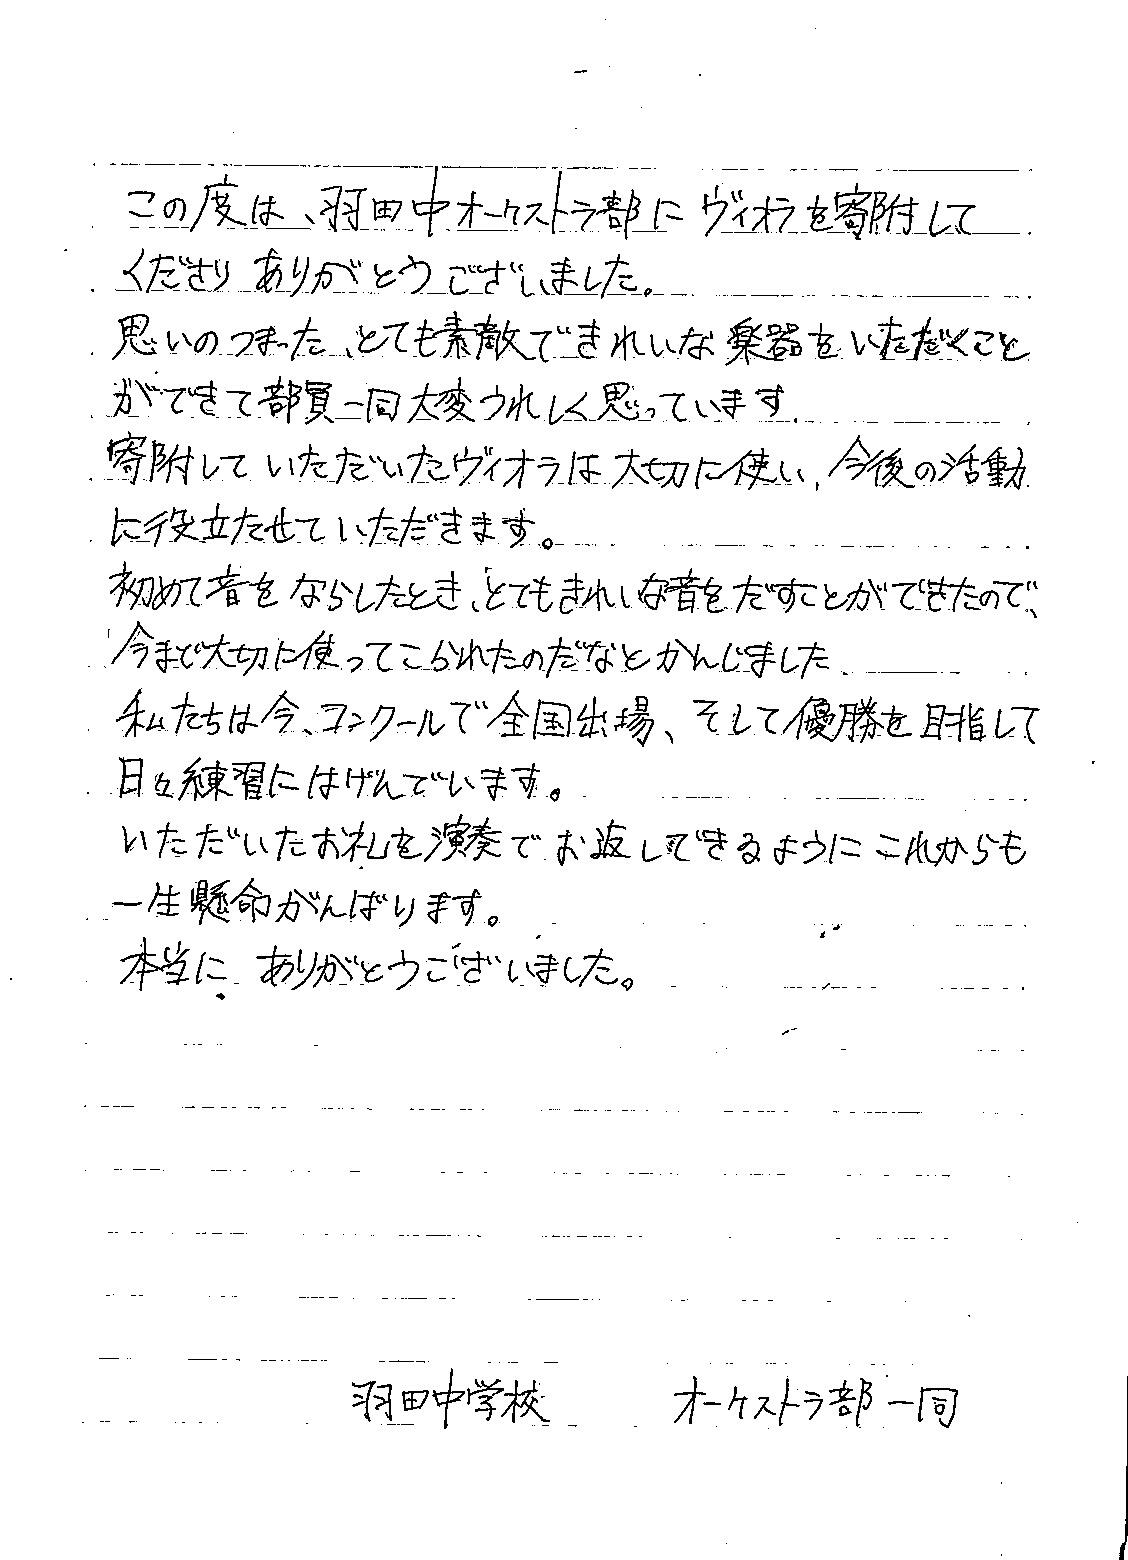 この度は、羽田中オーケストラ部に ヴィオラを寄附して
くださり ありがとうございました。
思いのつまった、とても素敵できれいな楽器をいただくこと
ができて部員一同大変うれしく思っています.
寄附していただいたヴィオラは大切に使い、今後の活動
に役立たせていただきます。
初めて音をならしたとき、とてもきれいな音をだすことができたので、
今まで大切に使ってこられたのだなとかんじました
私たちは今、コンクールで全国出場、そして優勝を目指して
日々練習にはげんでいます。
いただいたお礼を演奏でお返しできるようにこれからも
一生懸命がんばります。
本当に ありがとうございました。
羽田中学校 オーケストラ部 一同